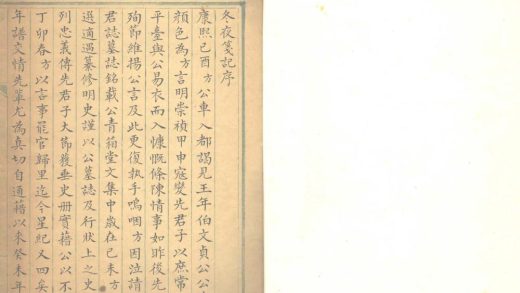 冬夜箋記序
康熙己酉方公車入都謁見王年伯文貞公公
顏色為方言明崇禎甲申寇變先君子以庶常
平臺與公易衣而入慷慨條陳情事如昨後先
殉節維揚公言及此更復執手嗚咽方因泣請
君誌墓誌銘載公青箱堂文集中歲在己未方
選適遇纂修明史謹以公墓誌及行狀上之史
列忠義傳先君子大節獲垂史冊實藉公以不
丁卯春方以言事罷官歸里迄今星紀又四矣
年譜交情先輩尤為真切自通籍以來癸未年